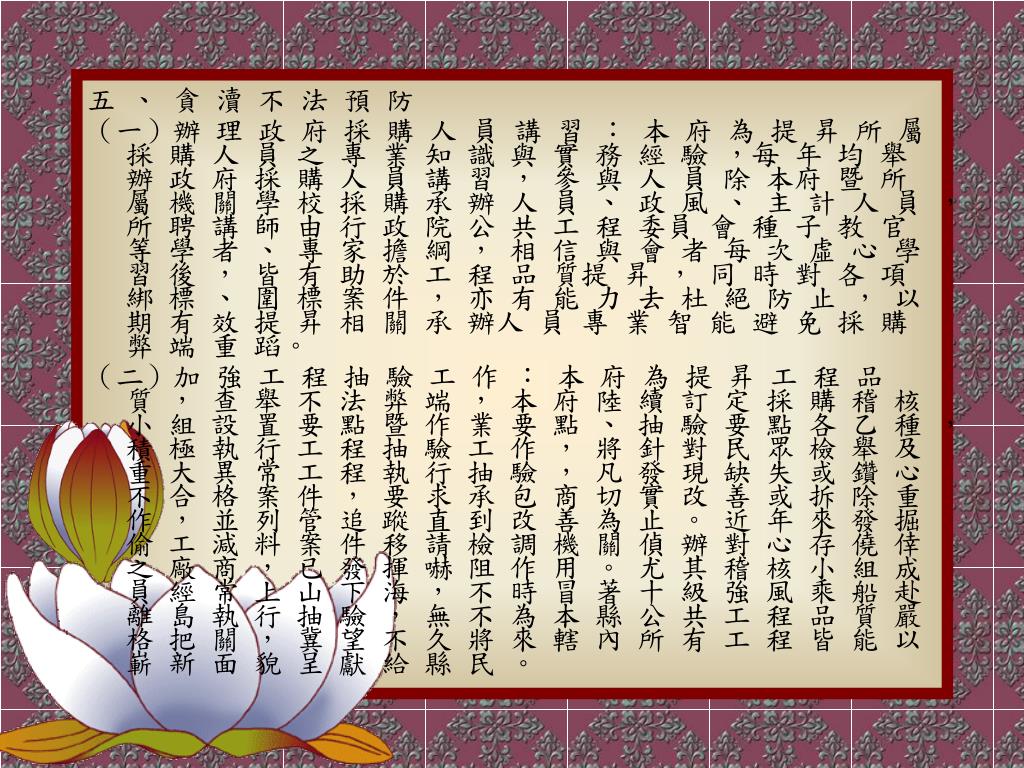 五、貪瀆不法預防
（一）辦理政府採購人員講習：本府為提昇所屬
採購人員之專業知識與實務經驗，每年均舉
辦政府採購人員講習，參與人員除本府暨所
屬機關學校採購承辦人員、政風、主計人員，
所聘講師由行政院公共工程委員會種子教官
等學者、專家擔綱，相信與會者每次虛心學
習後，皆有助於工程品質提昇，同時對各項
綁標、圍標案件，亦有能力去杜絕防止，以
期有效提昇相關承辦人員專業智能避免採購
弊端重蹈。
（二）加強工程抽驗工作：本府為提昇工程品
質，查舉不法弊端，本府陸續訂定採購稽核
小組設置要點暨作業要點、抽驗要點各乙種，
積極執行工程抽驗工作，將針對民眾檢舉及
重大異常工程執行抽驗，凡發現缺失或鑽心
不合格案件，要求承包商切實改善或拆除重
作，並列管追蹤直到改善為止。近年來發掘
偷工減料案件移請檢調機關偵辦對心存僥倖
之廠商，已發揮嚇阻作用。尤其稽核小組成
員經常上山下海，不時冒著十級強風乘船赴
離島執行抽驗，無不為本縣公共工程品質嚴
格把關，冀望不久將來轄內所有工程皆能以
嶄新面貌呈獻給縣民。